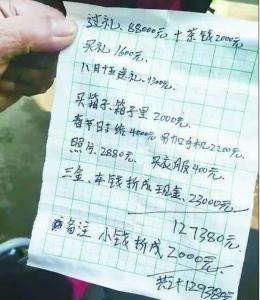 过礼、88000元 十茶钱2000元
买礼 1600元、
八月十五送礼、1300元、
买箱子、箱子里2000元
春节日给4000元 手机2200元
照片、2880元、 买衣服400元
三金、车钱折成现金、23000元
127380元
备注 小钱折成2000元
共计129380元